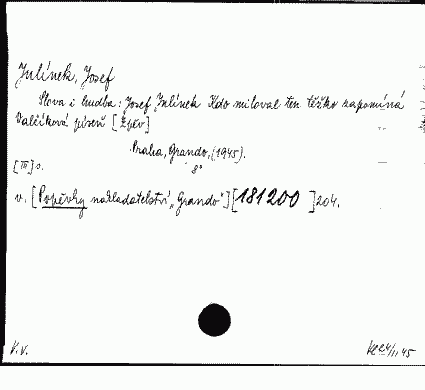 Julínek, Josef
Slova i hudba: Josef Julínek Kdo miloval ten těžko zapomíná
Valčíková píseň [Zpěv]
Praha, Grando, (1945).
8°
[III] s.
v. [Popěvky nakladatelství „Grando"] [181200] 204.
V.V.
24/II 45